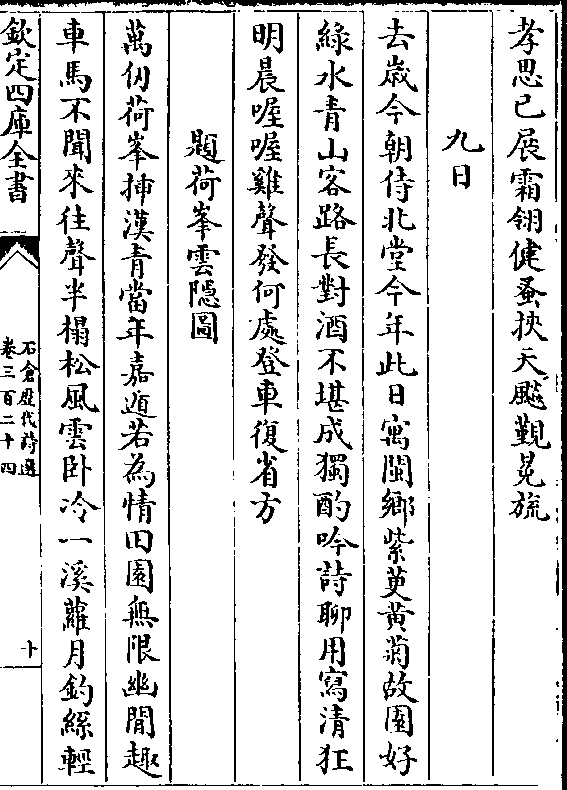 孝思已展霜翎健蚤挾天飈覲冕旒
九日
去歲今朝侍北堂今年此日寓閩鄉紫萸黃菊故園好
綠水青山客路長對酒不堪成獨酌吟詩聊用寫清狂
明晨喔喔雞聲發何處登車復省方
題荷峯雲隠圖
萬仞荷峯挿漢青當年嘉遁若為情田園無限幽閒趣
車馬不聞來往聲半榻松風雲卧冷一溪蘿月釣絲輕
欽定四庫全書
石倉歷代詩選
卷三百二十四
十